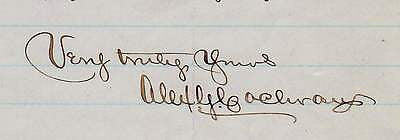 Very truly Yours
Alex G. Cochran